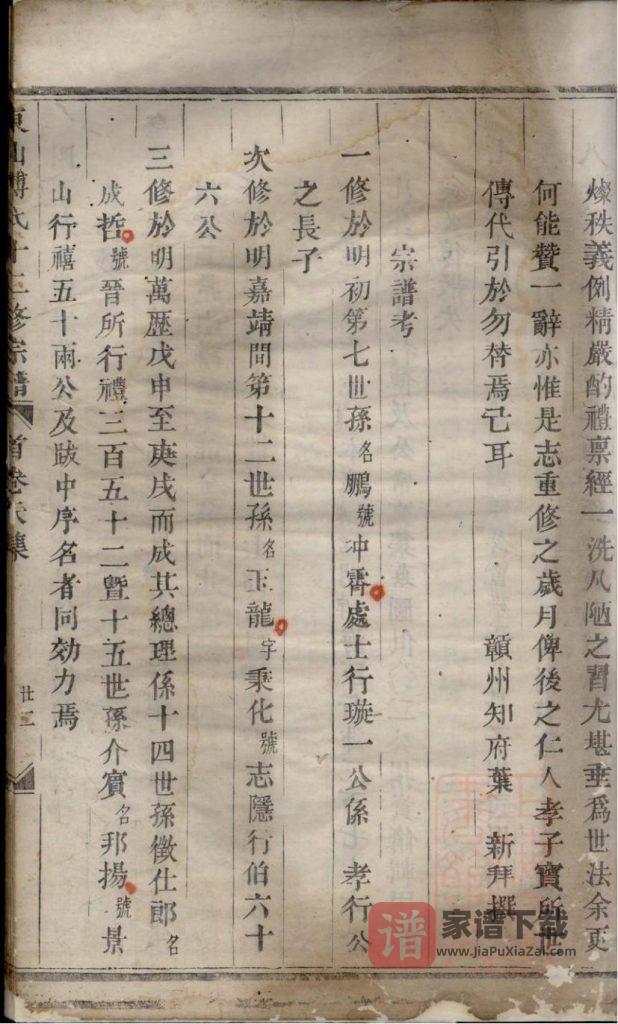 燦秩義例精嚴酌禮稟經一洗凡陋之習尤堪垂爲世法余更
何能贊一辭亦惟是志重修之歲月俾後之仁人孝子寶所世
傳代引於勿替焉已耳 贛州知府葉 新拜撰
宗譜考
一修於明初第七世孫名鵬號冲霄處士行璇一公係 孝行公
之長子
次修於明嘉靖間第十二世孫名玉龍字秉化號志隱行伯六十
六公
三修於明萬歷戊申至庚戌而成其總理係十四世孫徵仕郎名
成哲號晉所行禮三百五十二暨十五世孫介賓名邦揚號景
山行禧五十兩公及跋中序名者同効力焉
東山傅氏十二修宗譜 首卷 集 廿二
谱 家谱下载
www.JiaPuXiaZai.com